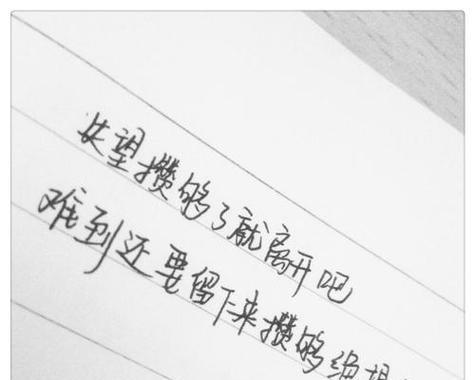 失望攒够了就离开吧
难到还要留下来攒够绝望